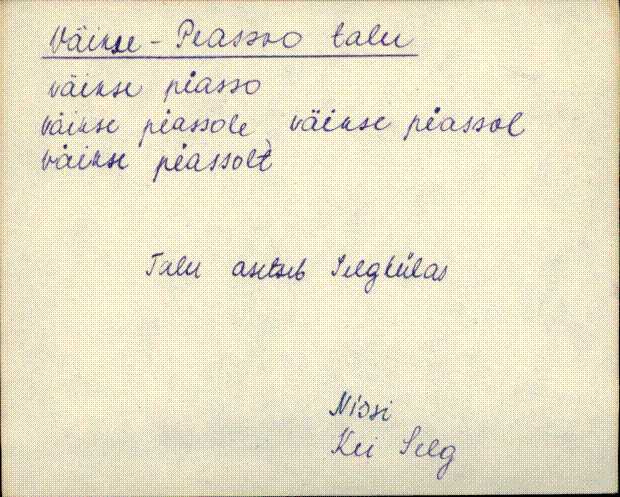 Väikse - Peassoo talu
väikse piasso
väikse piassole väikse piassol
väikse piassolt
Talu asetseb Selgkülas
Nissi
Kei Selg